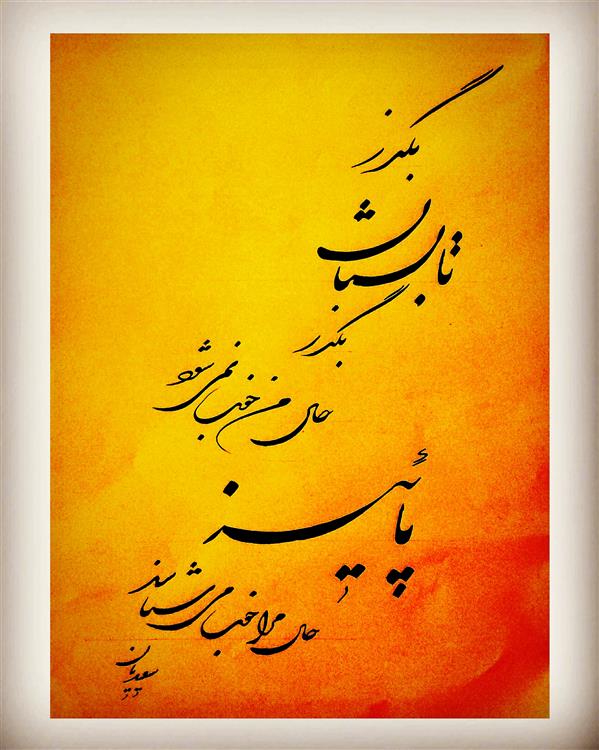 بگذر
تابستان
بگذر
حال من خوب نمی شود
پائیز
حال مرا خوب می شناسد
سعیدیان